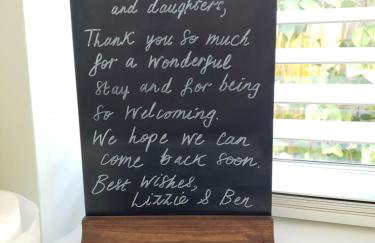 and daughters,
Thank you so much
for a wonderful
stay and for being
so welcoming.
We hope we can
come back soon.
Best Wishes,
Lizzie & Ben